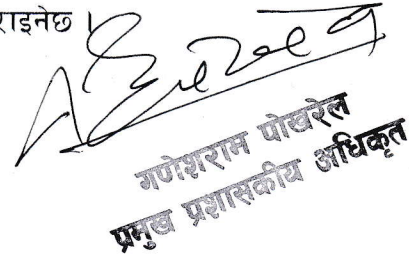 राइनेछ ।
गणेशराम पोखरेल
प्रमुख प्रशासकीय अधिकृत